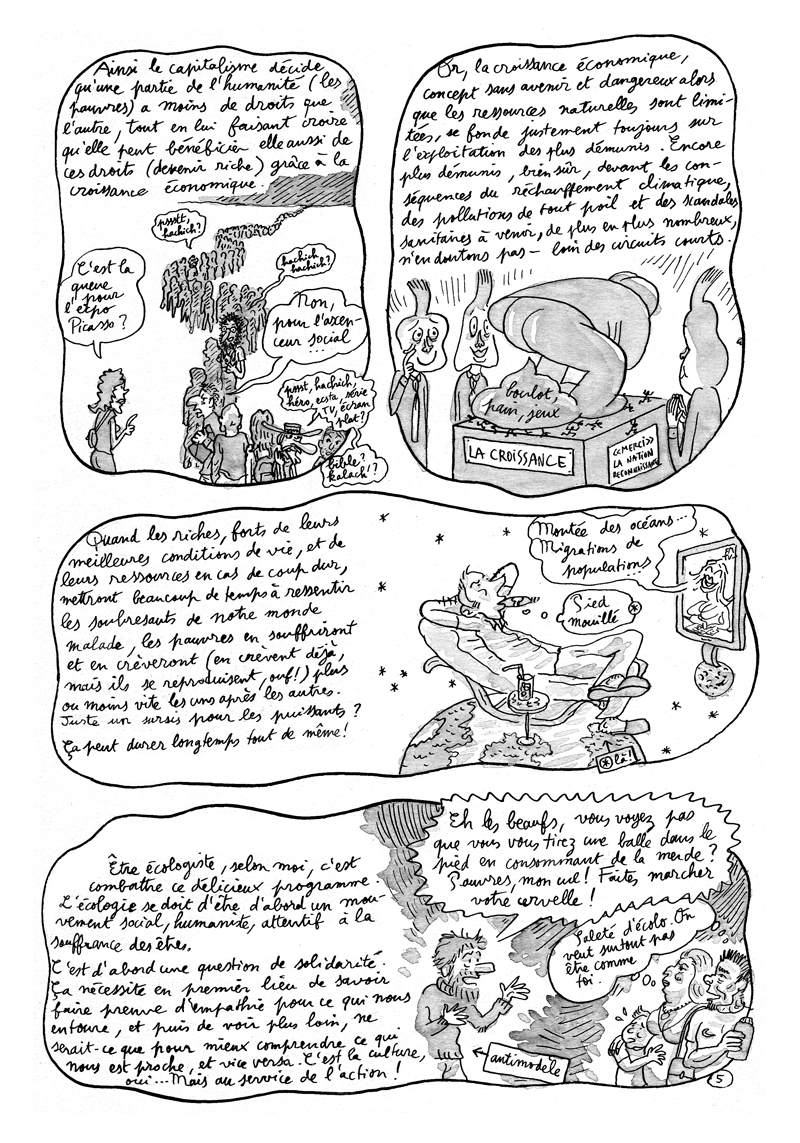 Ainsi le capitalisme décide
qu'une partie de l'humanité (les
pauvres) a moins de droits que
l'autre, tout en lui faisant croire
qu'elle peut bénéficier elle aussi de
ces droits (devenir riche) grâce à la
croissance économique.
psssst,
hachich?
C'est la
queue
pour
l'expo
Picasso?
hachich,
hachich?
Non,
pour l'ascen-
ceur social
...
pssst, hachich,
héro, exta, série
TV, écran
plat?
bible?
kalach!?
Or, la croissance économique,
concept sans avenir et dangereux alors
que les ressources naturelles sont limi-
tées, se fonde justement toujours sur
l'exploitation des plus démunis. Encore
plus démunis, bien sûr, devant les con-
séquences du réchauffement climatique,
des pollutions de tout poil et des scandales
sanitaires à venir, de plus en plus nombreux,
n'en doutons pas – loin des circuits courts.
boulot,
pain, jeux
LA CROISSANCE
«MERCI»
LA NATION
RECONNAISSANTE
Quand les riches, forts de leurs
meilleures conditions de vie, et de
leurs ressources en cas de coup dur,
mettront beaucoup de temps à ressentir
les soubresauts de notre monde
malade, les pauvres en souffriront
et en crèveront (en crèvent déjà,
mais ils se reproduisent, ouf!) plus
ou moins vite les uns après les autres.
Juste un sursis pour les puissants?
Ça peut durer longtemps tout de même!
Montée des océans...
Migrations de
populations...
Pied
mouillé *
* là!
Être écologiste, selon moi, c'est
combattre ce délicieux programme.
L'écologie se doit d'être d'abord un mou-
vement social, humanité, attentif à la
souffrance des êtres.
C'est d'abord une question de solidarité.
Ça nécessite en premier lieu de savoir
faire preuve d'empathie pour ce qui nous
entoure, et puis de voir plus loin, ne
serait-ce que pour mieux comprendre ce qui
nous est proche, et vice versa. C'est la culture,
oui... Mais au service de l'action!
Eh les beaufs, vous voyez pas
que vous vous tirez une balle dans le
pied en consommant de la merde?
Pauvres, mon cul! Faites marcher
votre cervelle!
Saleté d'écolo. On
veut surtout pas
être comme
toi.
antimodèle
5